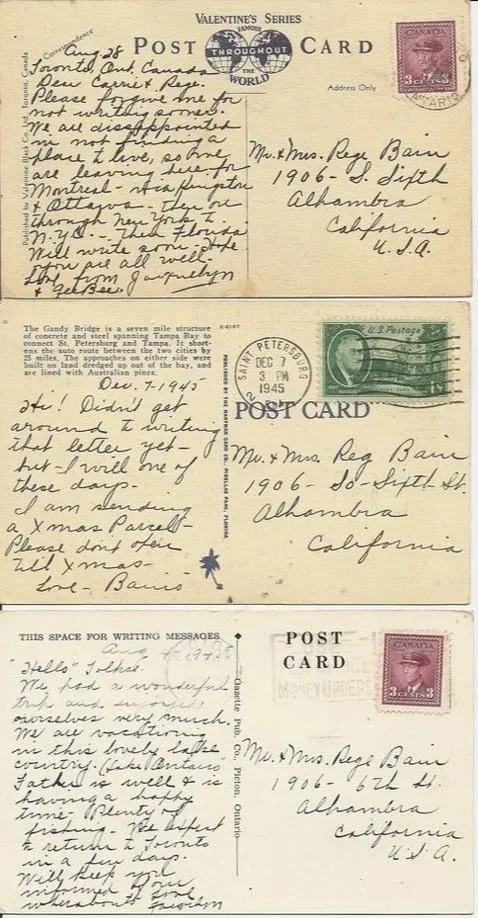 VALENTINE'S SERIES
FAMOUS
POST THROUGHOUT CARD
THE
WORLD
Correspondence
Address Only
CANADA
3 CENTS 3
Published by Valentine Black Co., Ltd., Toronto, Canada
Aug 28
Toronto, Ont. Canada
Dear Carrie & Rege.
Please forgive me for
not writing sooner.
We are disappointed
in not finding a
place to live, so we
are leaving here for
Montreal - via Kingston
& Ottawa - then on
through New York to
N.Y.C. - Then Florida
Will write soon - Hope
you are all well.
Love from Jacquelyn
& GeeBee.
Mr. & Mrs. Rege Bain
1906 - S. Sixth
Alhambra
California
U.S.A.
The Gandy Bridge is a seven mile structure
of concrete and steel spanning Tampa Bay to
connect St. Petersburg and Tampa. It short-
ens the auto route between the two cities by
25 miles. The approaches on either side were
built on land dredged up out of the bay, and
are lined with Australian pines.
Dec. 7-1945
Hi! Didn't get
around to writing
that letter yet -
but - I will one of
these days.
I am sending
a Xmas Parcel -
Please don't open
till Xmas -
Love - Bains
PUBLISHED BY THE HARTMAN CARD CO., PINELLAS PARK, FLORIDA
SAINT PETERSBURG
DEC 7
3 PM
1945
U.S. Postage
1¢
POST CARD
Mr. & Mrs. Reg Bain
1906 - So - Sixth St.
Alhambra
California
THIS SPACE FOR WRITING MESSAGES
POST
CARD
CANADA
3 CENTS 3
MONEY ORDERS
Aug
"Hello" Folkse
We had a wonderful
trip and enjoyed
ourselves very much.
We are vacationing
in this lovely lake
country. (Lake Ontario)
Father is well & is
having a happy
time - Plenty of
fishing - We expect
to return to Toronto
in a few days.
Will keep you
informed of our
whereabouts Love
Gazette Pub. Co., Picton, Ontario
Mr. & Mrs. Rege Bain
1906 - 6th St.
Alhambra
California
U.S.A.